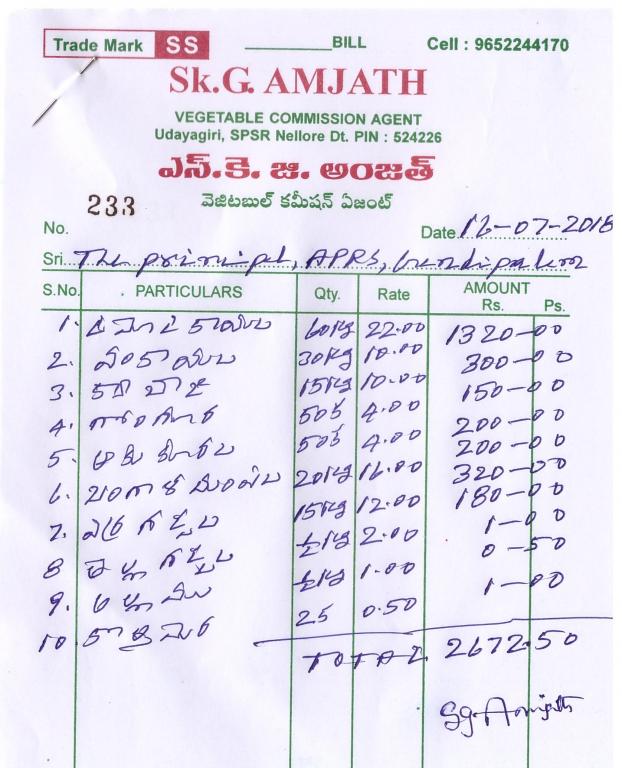 Trade Mark SS BILL Cell : 9652244170
Sk.G. AMJATH
VEGETABLE COMMISSION AGENT
Udayagiri, SPSR Nellore Dt. PIN : 524226
ఎస్.కె. జి. అంజత్
వెజిటబుల్ కమీషన్ ఏజంట్
233
No. Date 16-07-2018
Sri The principal, APRS,
S.No. PARTICULARS Qty. Rate AMOUNT
Rs. Ps.
1. 60Kg 22.00 1320-00
2. వంకాయలు 30Kg 10.00 300-00
3. 15Kg 10.00 150-00
4. గోంగూర 50 4.00 200-00
5. ఆకు కూరలు 50 4.00 200-00
6. బంగాళ దుంపలు 20Kg 16.00 320-00
7. ఎర్ర గడ్డలు 15Kg 12.00 180-00
8 తెల్ల గడ్డలు ½Kg 2.00 1-00
9. అల్లము ½Kg 1.00 0-50
10. కొత్తిమీర 25 0.50 1-00
TOTAL 2672.50